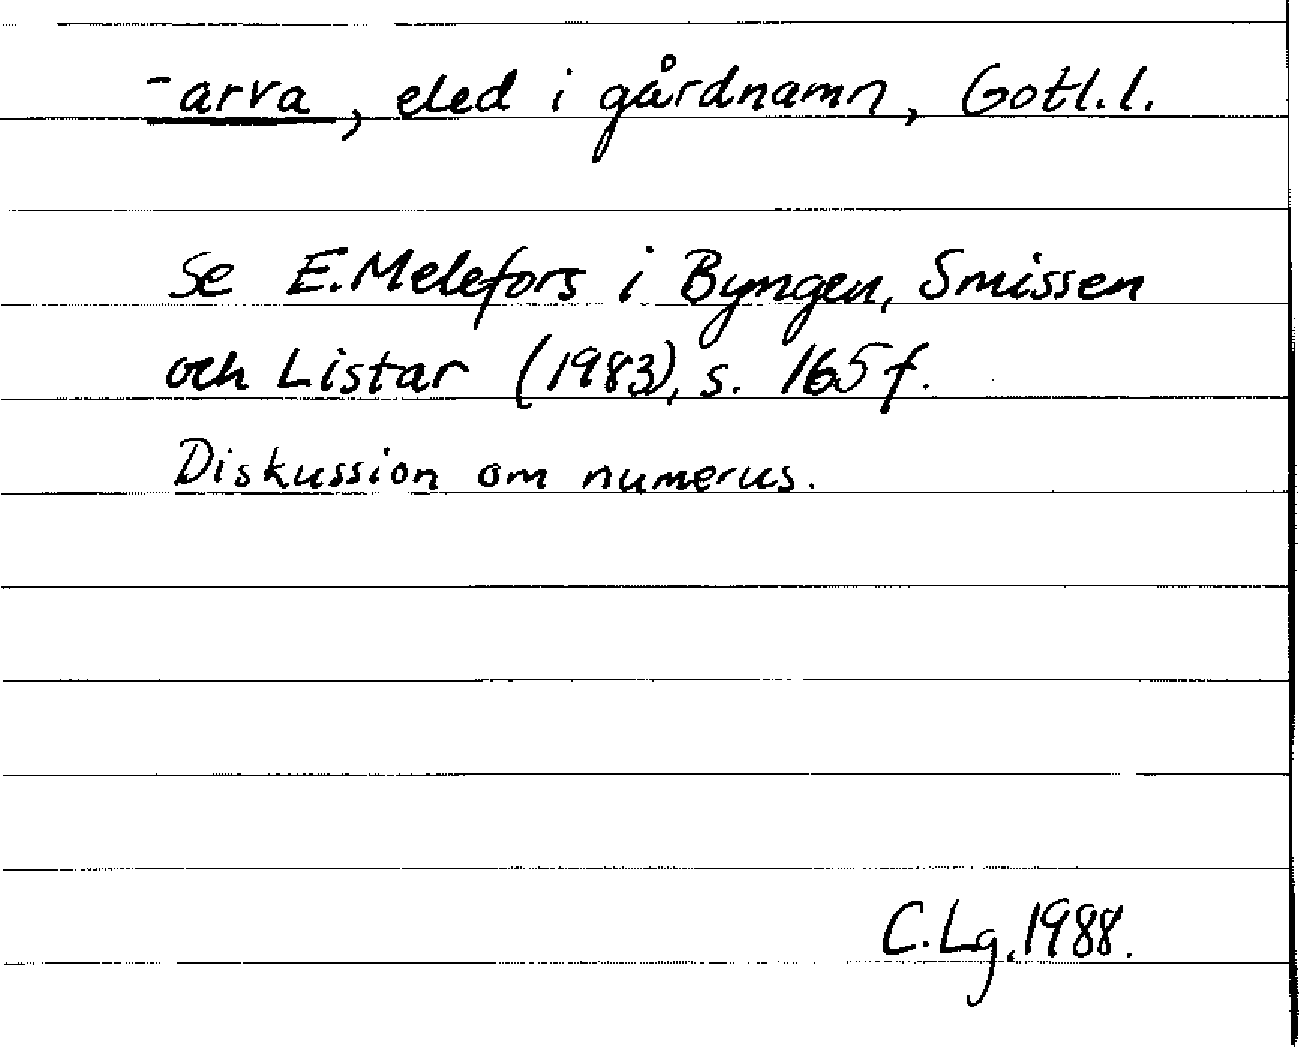 -arva, eled i gårdnamn, Gotl. l.
Se E. Melefors i Byngen, Smissen
och Listar (1983), s. 165 f.
Diskussion om numerus.
C. Lg. 1988.